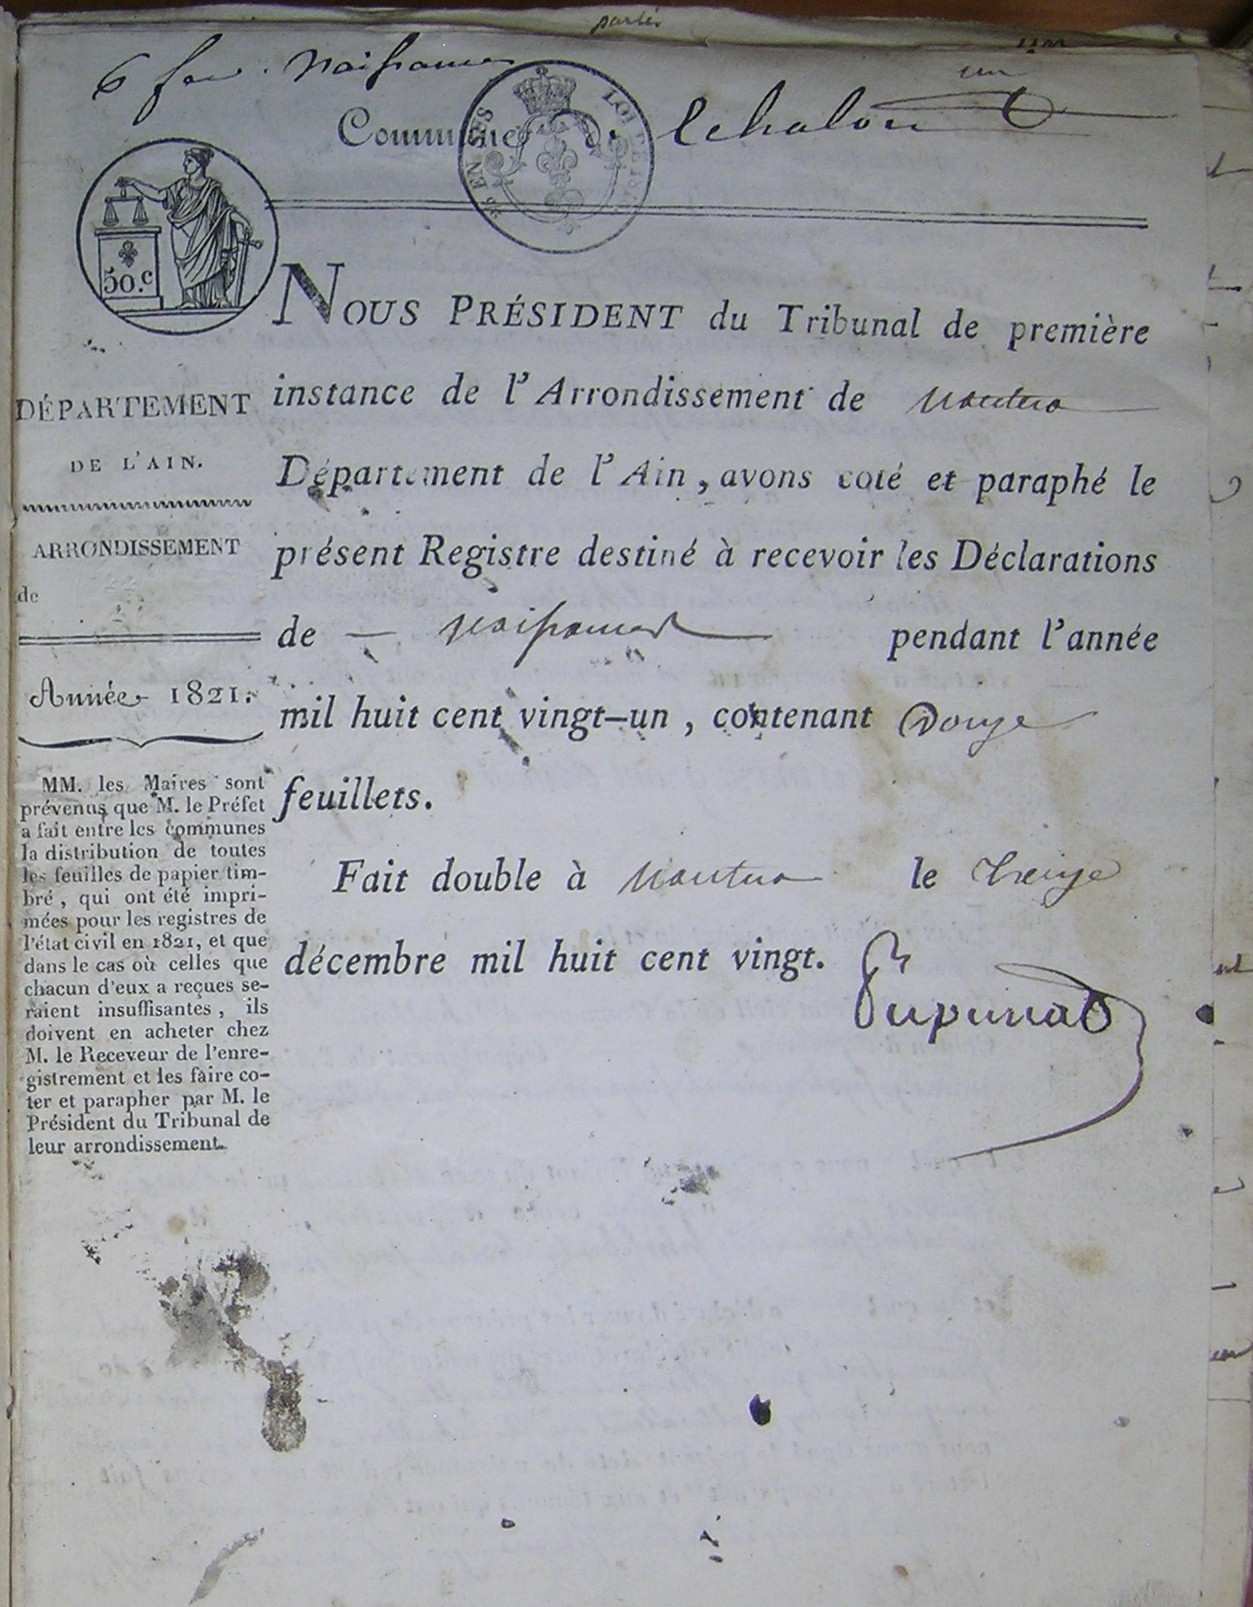 naissances
Commune de Echalon
un
50.c
EN SUS
LOI DE
NOUS PRÉSIDENT du Tribunal de première
instance de l'Arrondissement de nantua
Département de l'Ain, avons coté et paraphé le
présent Registre destiné à recevoir les Déclarations
de — naissances pendant l'année
mil huit cent vingt-un, contenant Douze
feuillets.
Fait double à nantua le treize
décembre mil huit cent vingt.
DÉPARTEMENT
DE L'AIN.
ARRONDISSEMENT
de
Année 1821.
MM. les Maires sont
prévenus que M. le Préfet
a fait entre les communes
la distribution de toutes
les feuilles de papier tim-
bré, qui ont été impri-
mées pour les registres de
l'état civil en 1821, et que
dans le cas où celles que
chacun d'eux a reçues se-
raient insuffisantes, ils
doivent en acheter chez
M. le Receveur de l'enre-
gistrement et les faire co-
ter et parapher par M. le
Président du Tribunal de
leur arrondissement.